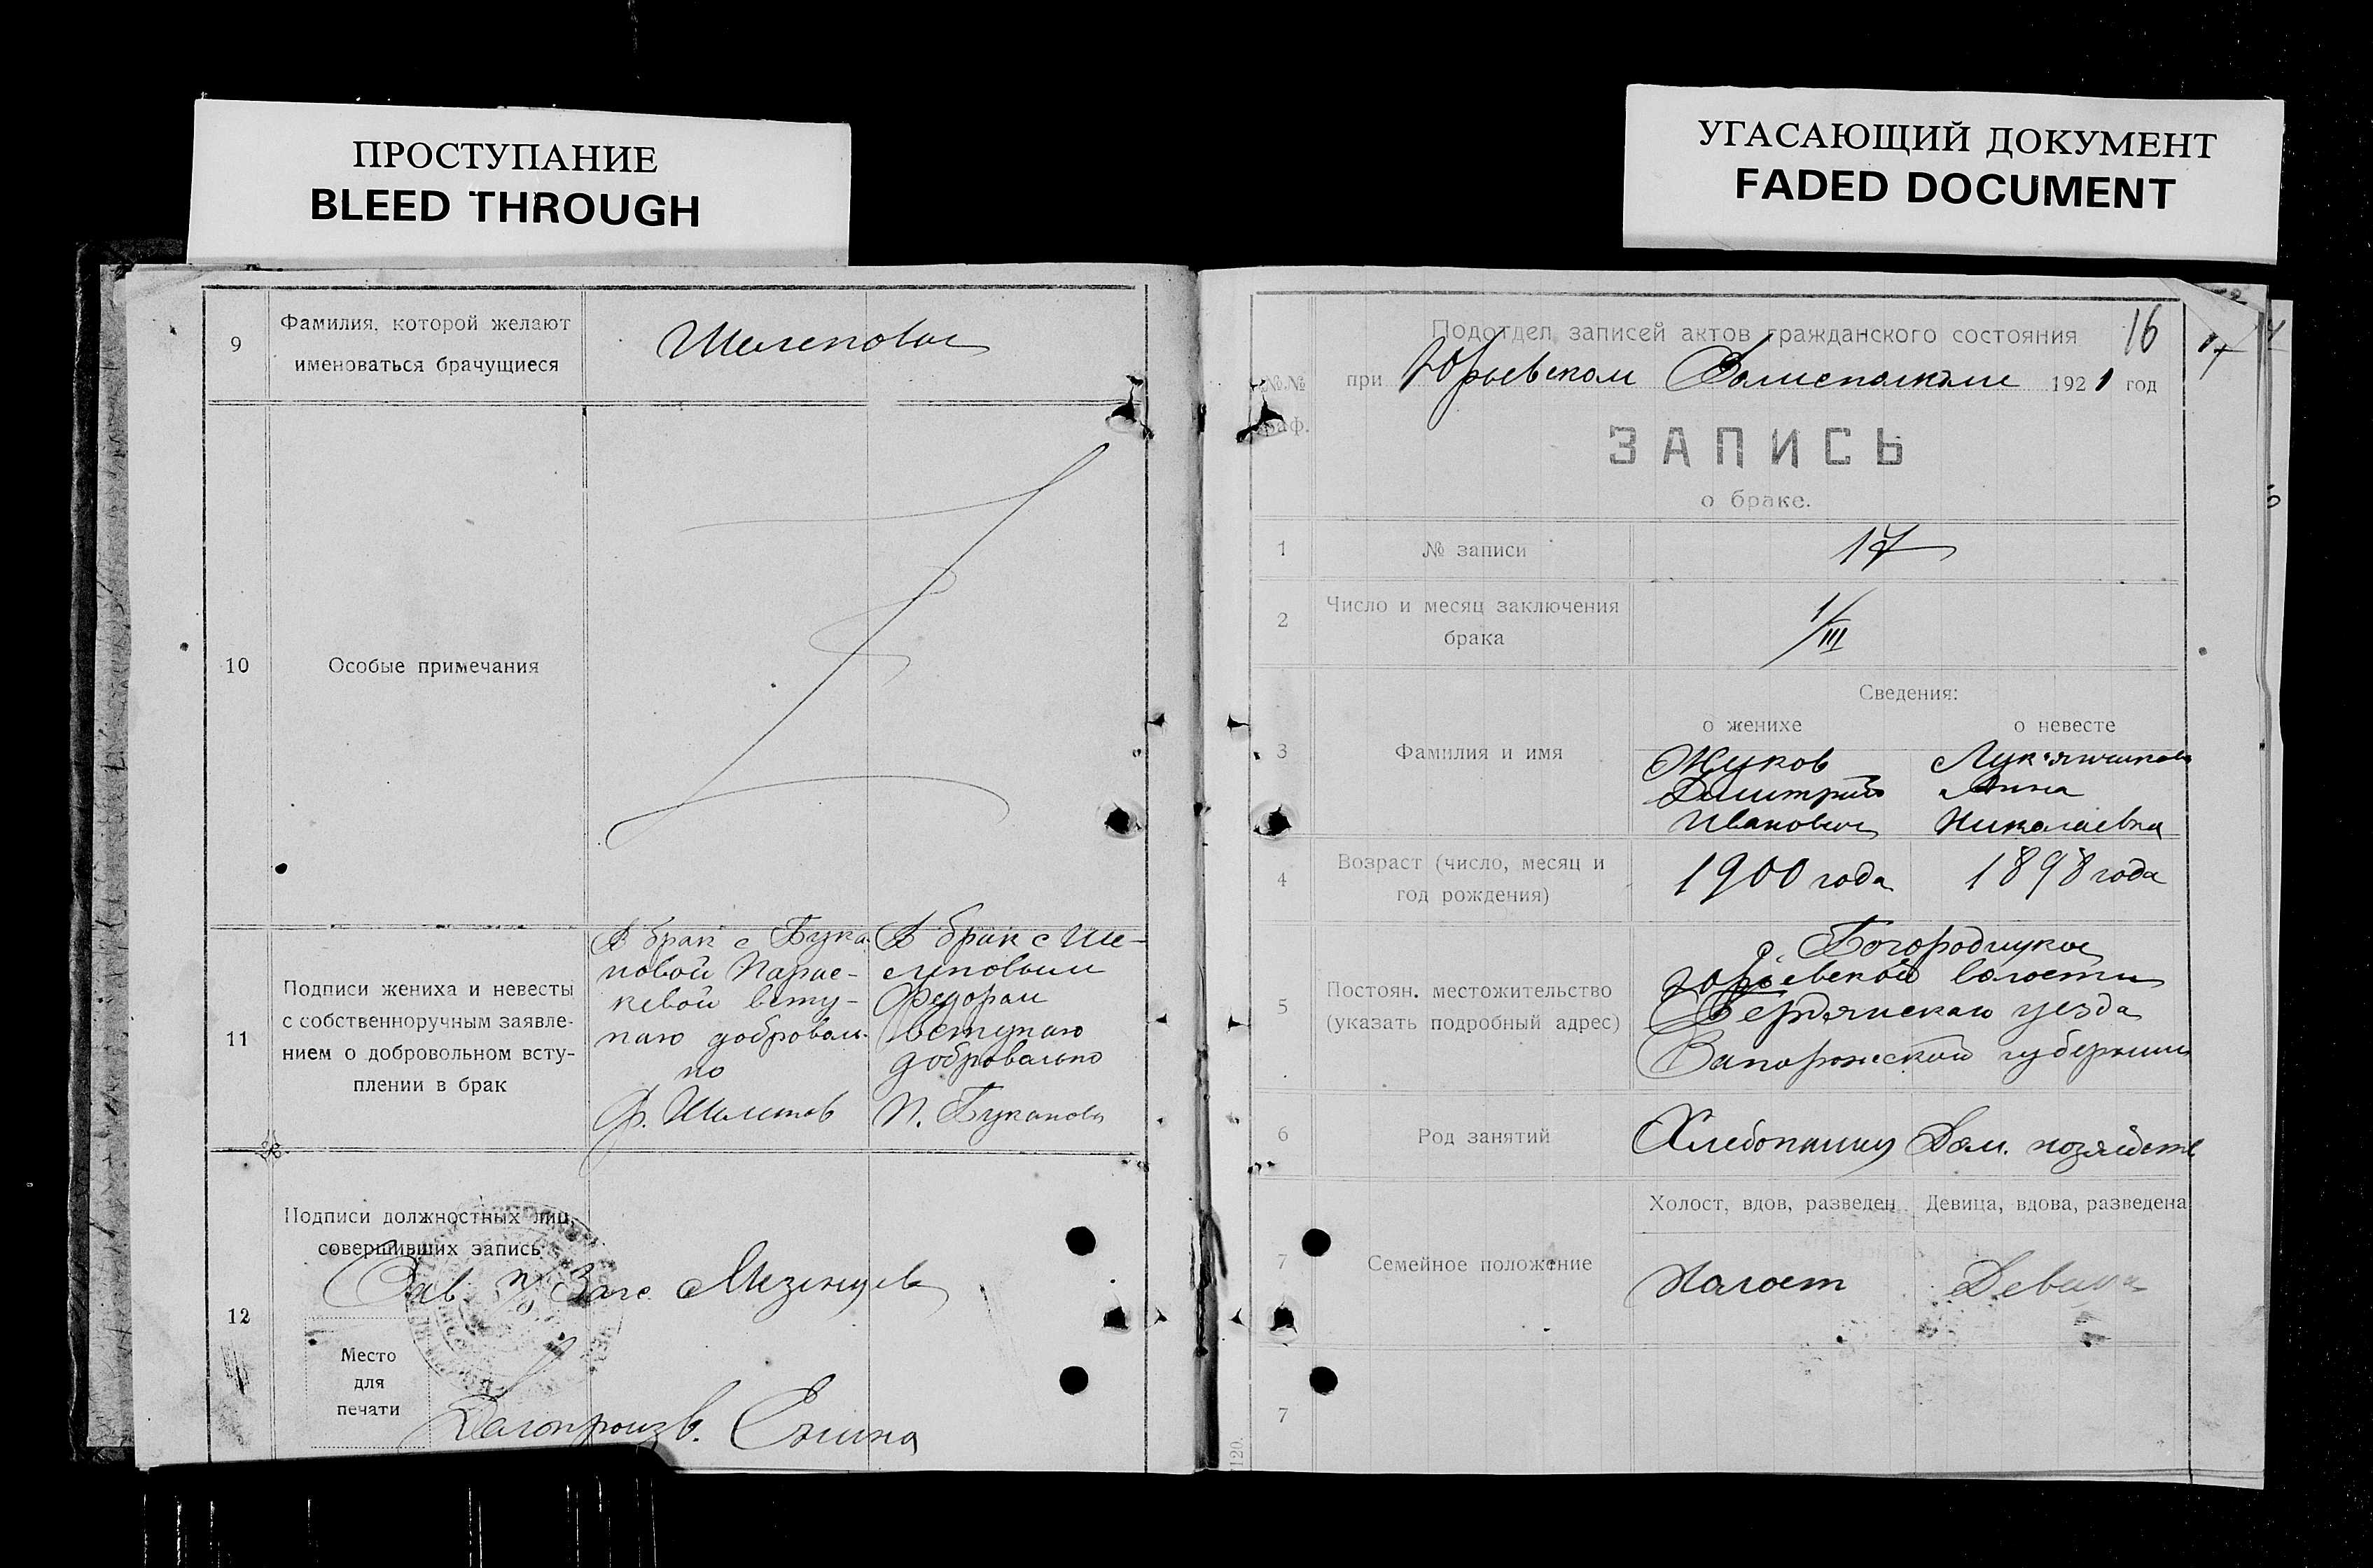 ПРОСТУПАНИЕ
BLEED THROUGH
УГАСАЮЩИЙ ДОКУМЕНТ
FADED DOCUMENT
9
Фамилия, которой желают
именоваться брачущиеся
10
Особые примечания
11
Подписи жениха и невесты
с собственноручным заявле-
нием о добровольном всту-
плении в брак
В брак с Бука
новой Парас-
кевой всту-
паю доброволь-
но
Ф.
В брак с Ше-
Федором
вступаю
добровольно
П. Буканова
12
Подписи должностных лиц,
совершивших запись
Зав. п/ Загс Мезенцев
Место
для
печати
Делопроизв.
Подотдел записей актов гражданского состояния
16
17
№№
граф.
при Юрьевском Волисполкоме 1921 год
ЗАПИСЬ
о браке.
1
№ записи
17
2
Число и месяц заключения
брака
1/III
Сведения:
о женихе
о невесте
3
Фамилия и имя
Жуков
Димитрий
Иванович
Анна
Николаевна
4
Возраст (число, месяц и
год рождения)
1900 года
1898 года
5
Постоян. местожительство
(указать подробный адрес)
с. Богородицкое
Юрьевской волости
Бердянского уезда
Запорожской губернии
6
Род занятий
Хлебопашец
Дом. хозяйств
7
Семейное положение
Холост, вдов, разведен
Девица, вдова, разведена
Холост
Девица
7
120.